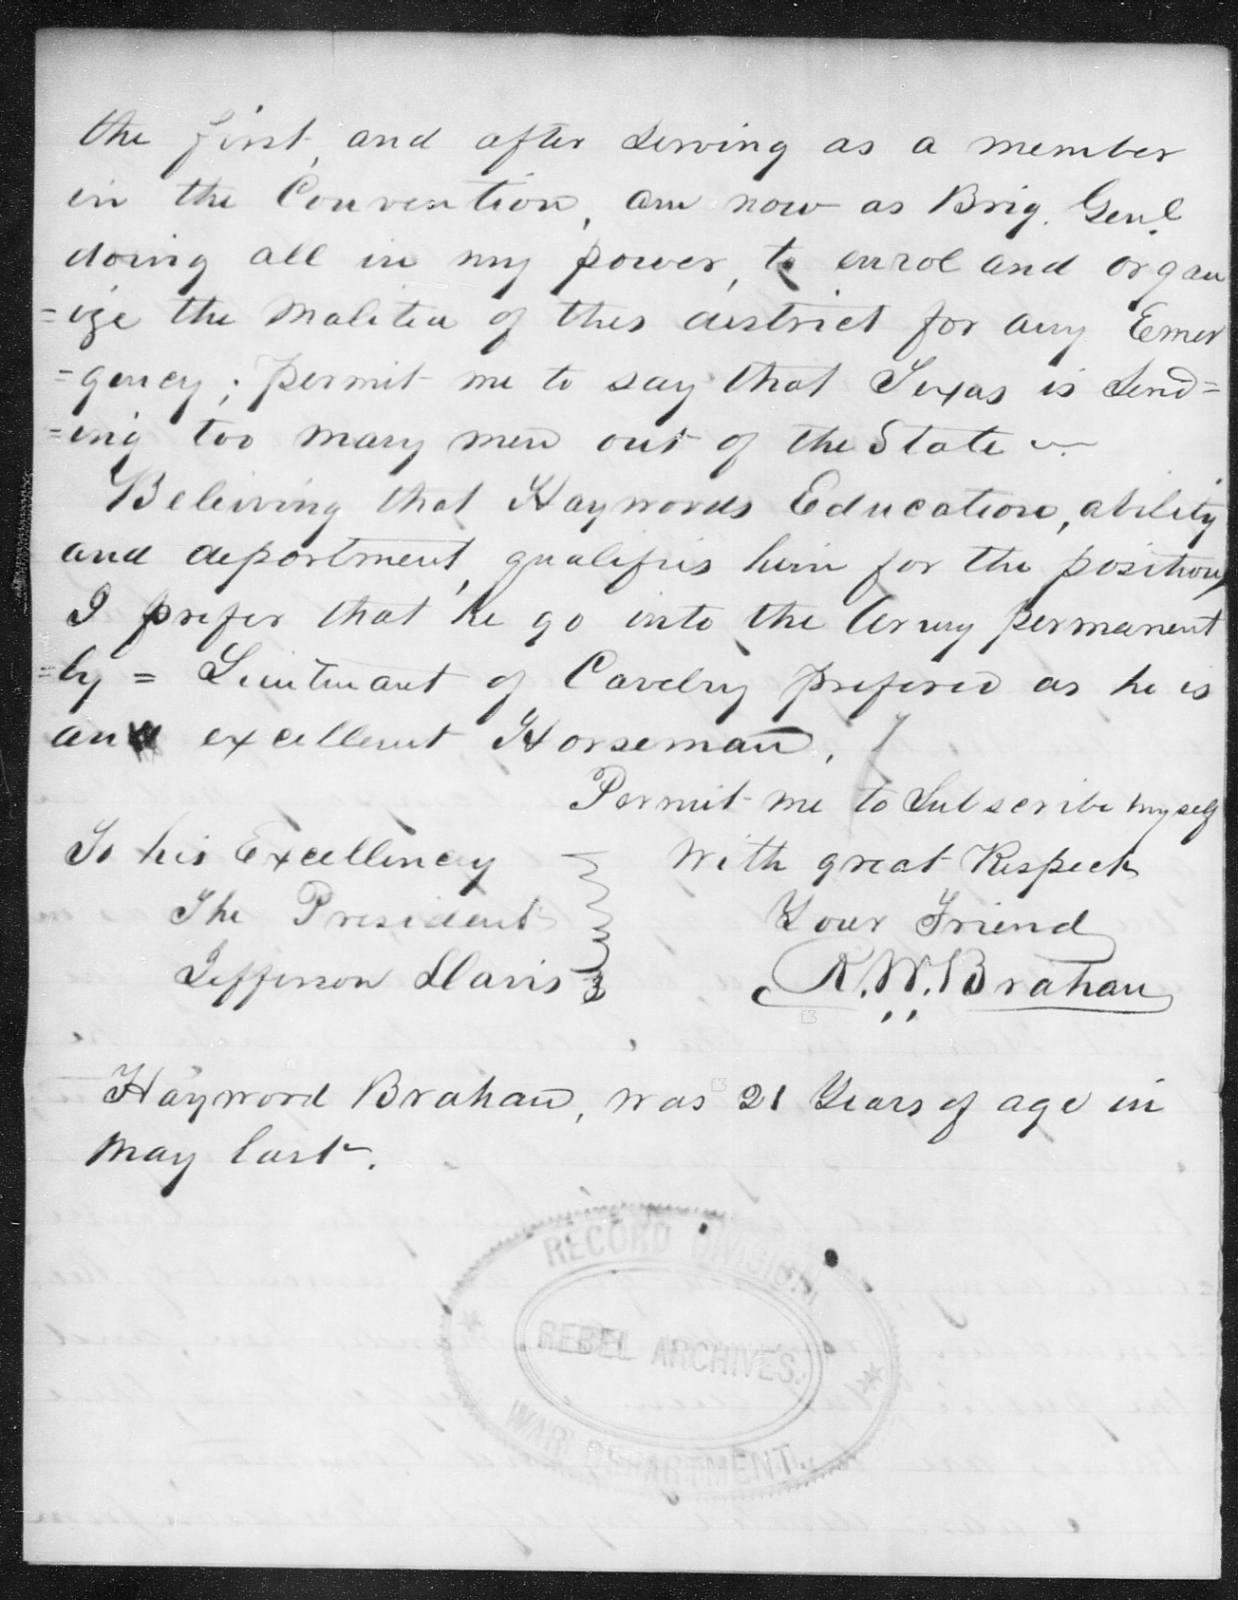 the first, and after serving as a member
in the Convention, am now as Brig. Genl
doing all in my power, to enrol and organ
=ize the Malitia of this district for any Emer
=gency; permit me to say that Texas is send=
=ing too many men out of the State
Beleiving that Haywords Education, ability
and deportment, qualifies him for the position,
I prefer that he go into the Army permanent
=ly = Lieutenant of Cavelry prefered as he is
an excellent Horseman.
Permit me to Subscribe myself
To his Excellency
With great Respect
The President
Your Friend
Jefferson Davis
R. W. Brahan
Hayword Brahan, was 21 Years of age in
May last.
RECORD DIVISION
REBEL ARCHIVES.
WAR DEPARTMENT.